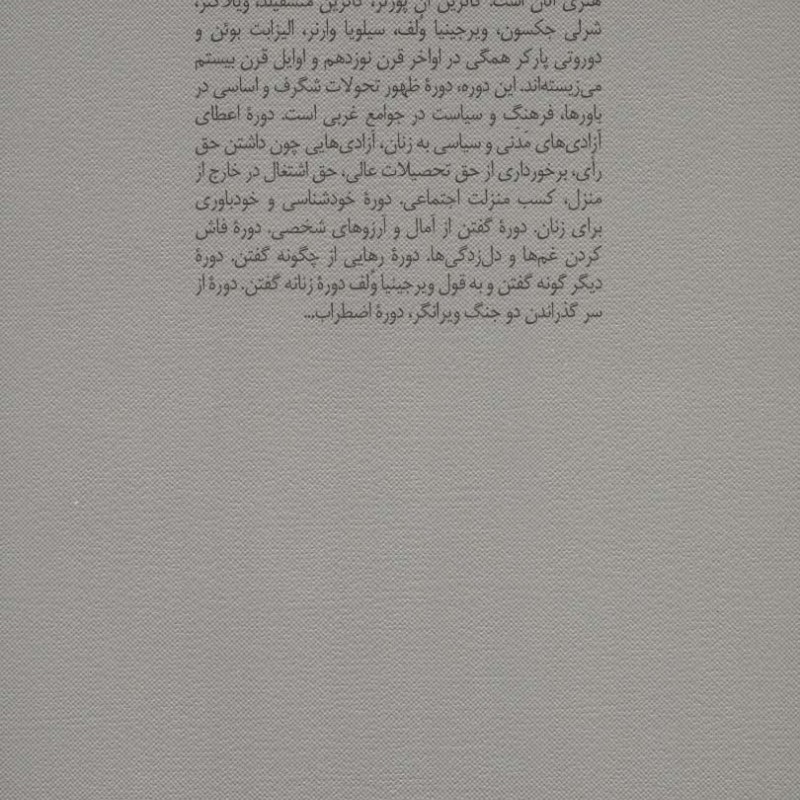 هنری آنان است. کاترین آن پورتر، کاترین منسفیلد، ویلا کتر،
شرلی جکسون، ویرجینیا وُلف، سیلویا وارنر، الیزابت بوئن و
دوروتی پارکر همگی در اواخر قرن نوزدهم و اوایل قرن بیستم
می‌زیسته‌اند. این دوره، دورهٔ ظهور تحولات شگرف و اساسی در
باورها، فرهنگ و سیاست در جوامع غربی است. دورهٔ اعطای
آزادی‌های مَدَنی و سیاسی به زنان، آزادی‌هایی چون داشتن حق
رأی، برخورداری از حق تحصیلات عالی، حق اشتغال در خارج از
منزل، کسب منزلت اجتماعی. دورهٔ خودشناسی و خودباوری
برای زنان. دورهٔ گفتن از آمال و آرزوهای شخصی. دورهٔ فاش
کردن غم‌ها و دل‌زدگی‌ها. دورهٔ رهایی از چگونه گفتن. دورهٔ
دیگر گونه گفتن و به قول ویرجینیا وُلف دورهٔ زنانه گفتن. دورهٔ از
سر گذراندن دو جنگ ویرانگر، دورهٔ اضطراب...